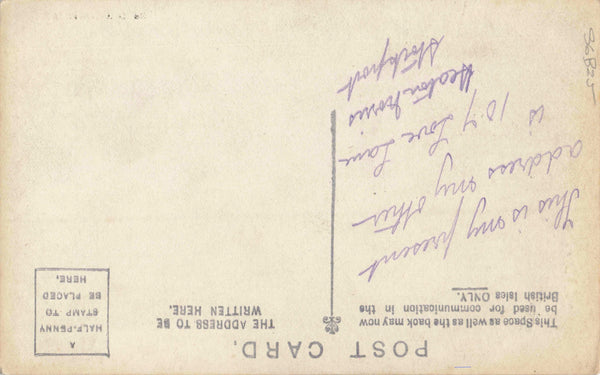 POST CARD.
This Space as well as the back may now
be used for communication in the
British Isles ONLY.
THE ADDRESS TO BE
WRITTEN HERE.
A
HALF-PENNY
STAMP TO
BE PLACED
HERE.
This is my present
address my other
is 107 Love Lane
Heaton Norris
Stockport